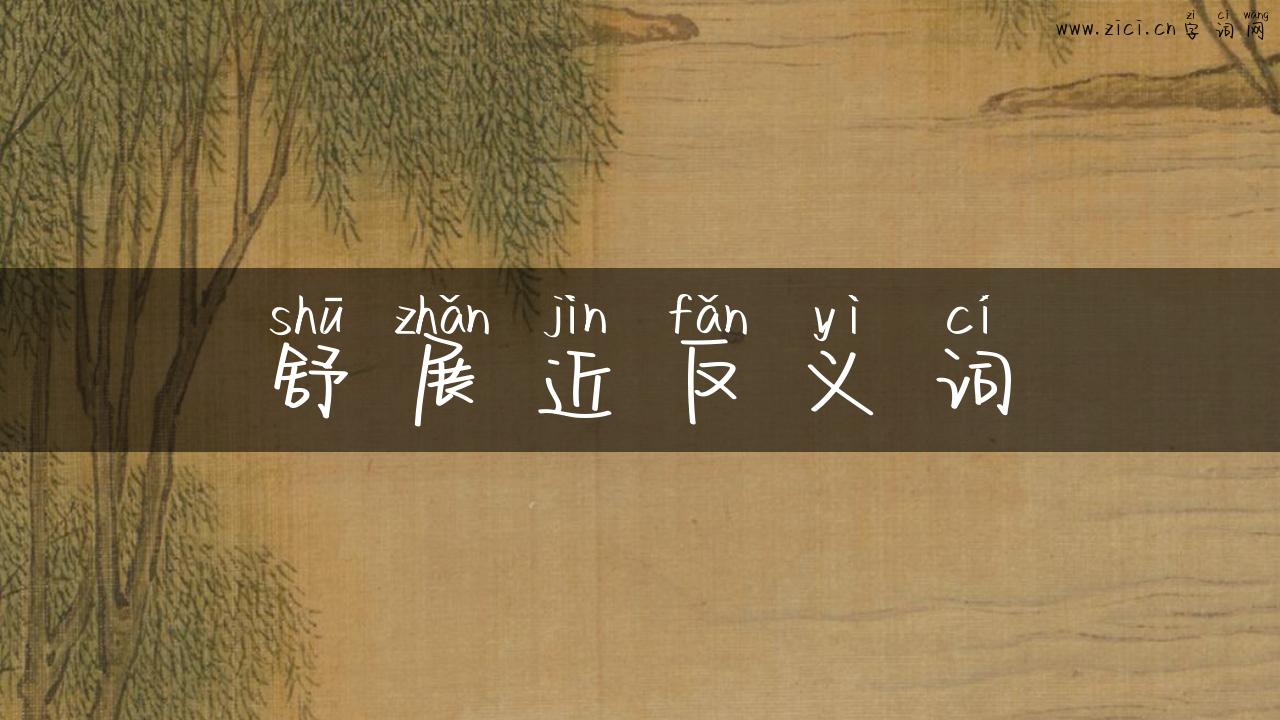 zì cí wǎng
www.zici.cn 字词网
shū zhǎn jìn fǎn yì cí
舒展近反义词